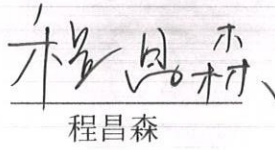 程昌森
程昌森